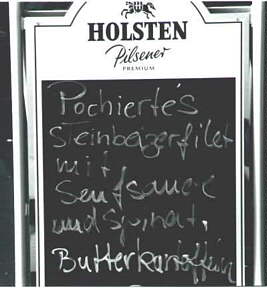 HOLSTEN
Pilsener
PREMIUM
Pochierte's
Steinbeizerfilet
mit
Senfsauce
und Spinat,
Butterkartoffeln